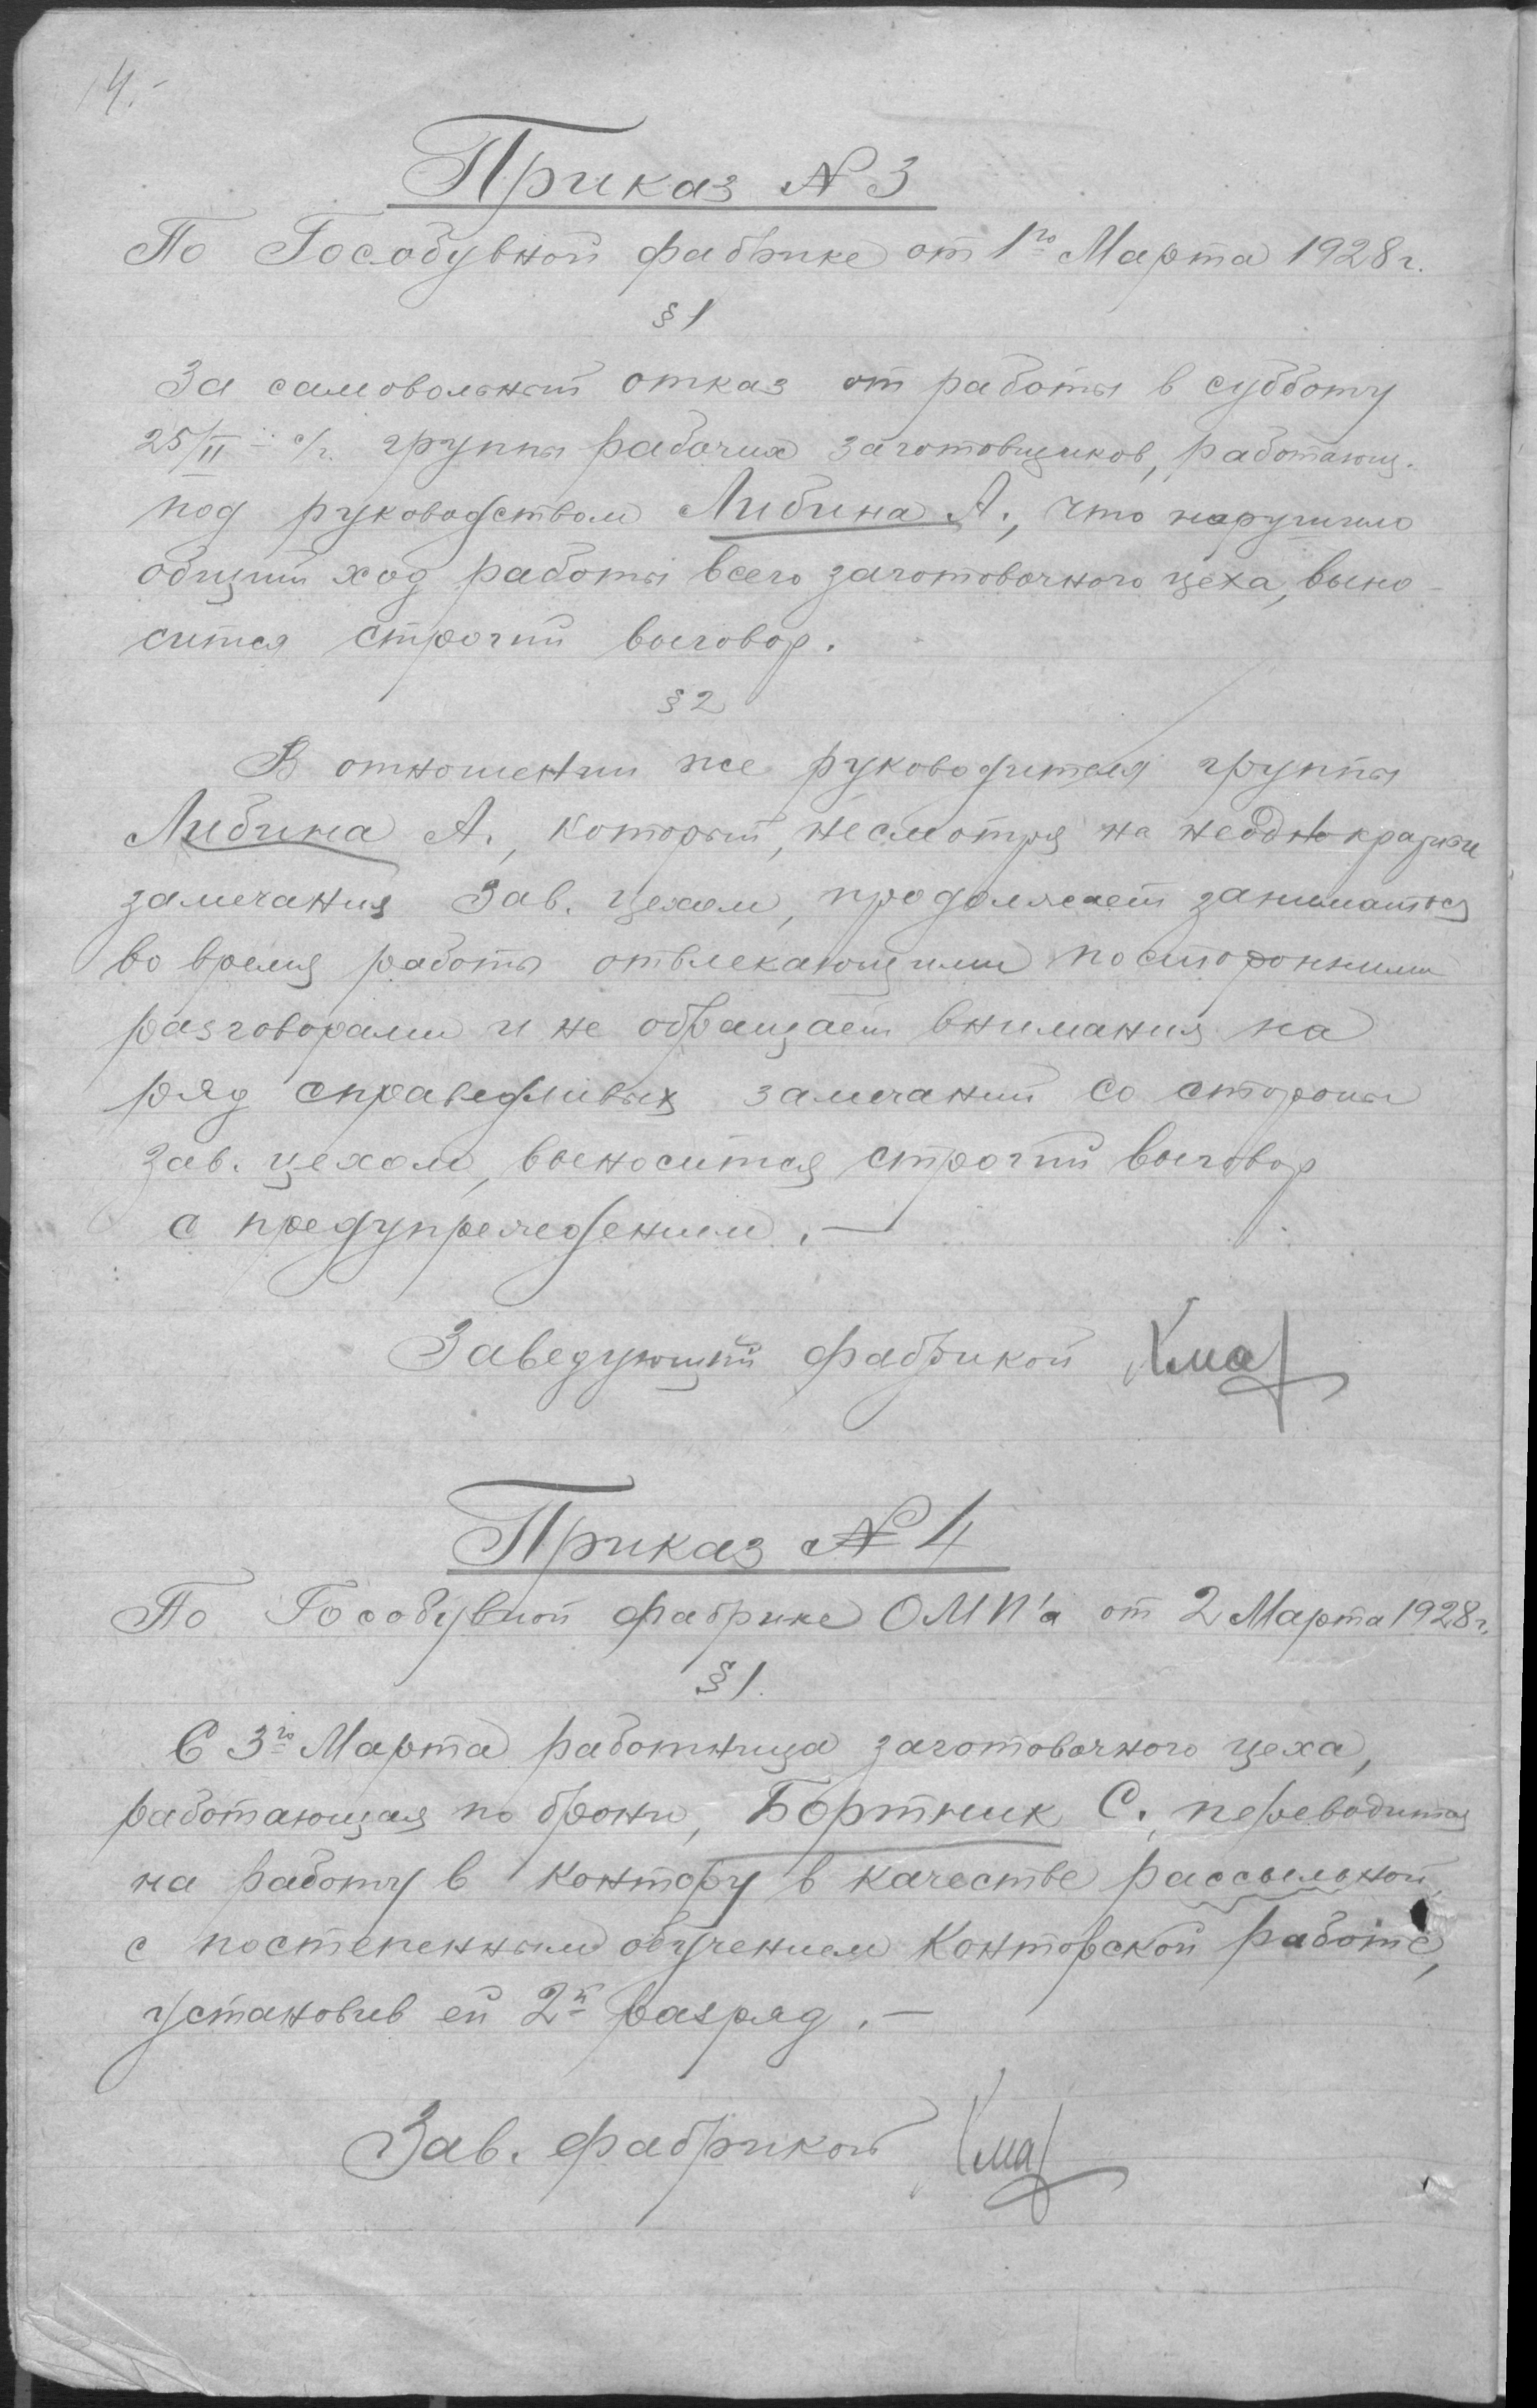 4.-
Приказ № 3
По Гособувной фабрике от 1го Марта 1928 г.
§ 1
За самовольный отказ от работы в субботу
25/II - с/г. группы рабочих заготовщиков, работающ.
под руководством Либина А., что нарушило
общий ход работы всего заготовочного цеха, выно-
сится строгий выговор.
§ 2
В отношении же руководителя группы
Либина А., который, несмотря на неоднократные
замечания Зав. цехом, продолжает заниматься
во время работы отвлекающими посторонними
разговорами и не обращает внимания на
ряд справедливых замечаний со стороны
зав. цехом, выносится строгий выговор
с предупреждением. —
Заведующий фабрикой
Приказ № 4
По Гособувной фабрике ОМП'а от 2 Марта 1928 г.
§ 1.
С 3го Марта работница заготовочного цеха,
работающая по брони, Бортник С., переводится
на работу в контору в качестве рассыльной,
с постепенным обучением конторской работе,
установив ей 2й разряд. —
Зав. фабрикой